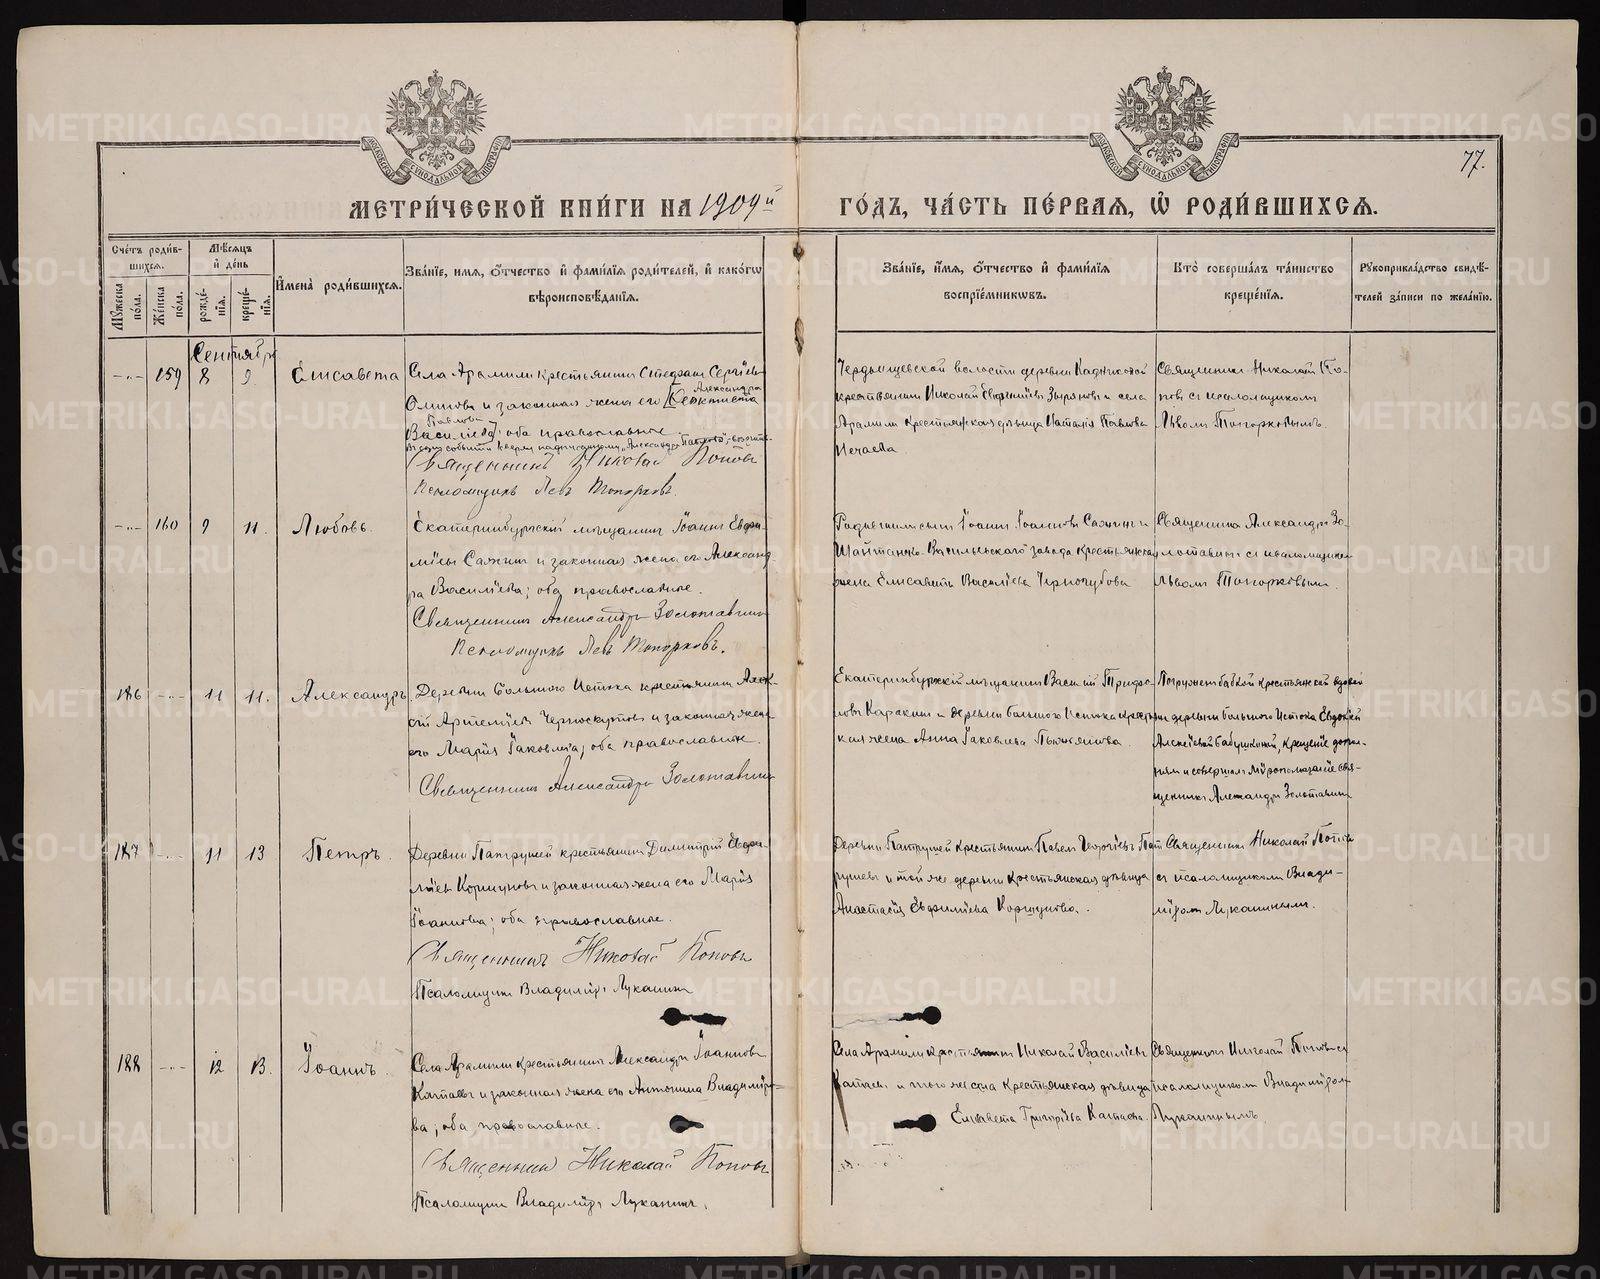 МОСКОВСКОЙ СѴНОДАЛЬНОЙ ТИПОГРАФІИ
МОСКОВСКОЙ СѴНОДАЛЬНОЙ ТИПОГРАФІИ
77.
МЕТРИ́ЧЕСКОЙ КНИ́ГИ НА 1909й ГО́ДЪ, ЧА́СТЬ ПЕ́РВАЯ, Ѡ҆ РОДИ́ВШИХСѦ.
Сче́тъ роди́вшихсѧ.
Му́жеска по́ла.
Же́нска по́ла.
Мѣ́сѧцъ и҆ де́нь
рожде́нїѧ.
креще́нїѧ.
И҆мена̀ роди́вшихсѧ.
Зва́нїе, и҆мѧ, ѻ҆́тчество и҆ фами́лїѧ роди́телей, и҆ како́гѡ
вѣроисповѣ́данїѧ.
Зва́нїе, и҆́мѧ, ѻ҆́тчество и҆ фами́лїѧ
воспрїе́мникѡвъ.
Кто̀ соверша́лъ та́инство
креще́нїѧ.
Рꙋкоприкла́дство свидѣ́телей за́писи по жела́нїю.
Сентябрь
-"- 159 8 9. Елисавета
Села Арамили крестьянинъ Стефанъ Сергіевъ
и законная жена его [Феоктиста Александра
Васильева] Павлова; оба православные.
Священникъ Николай Поповъ
Псаломщикъ Левъ Топорковъ.
волости деревни крестьянинъ Николай Зыряновъ и села
Арамили крестьянская дѣвица Наталія Павлова
Нечаева.
Священникъ Николай По-
повъ съ псаломщикомъ
Львомъ Топорковымъ.
-"- 160 9 11. Любовь.
Екатеринбургскій мѣщанинъ Іоаннъ Евфи-
міевъ и законная жена его Александ-
ра Васильева; оба православные.
Священникъ Александръ Золотавинъ
Псаломщикъ Левъ Топорковъ.
Іоаннъ Іоанновъ и
Шайтанко-Васильевскаго завода крестьянская
жена Елисавета Васильева Черногубова
Священникъ Александръ Зо-
лотавинъ съ псаломщикомъ
Львомъ Топорковымъ.
186 -"- 11 11. Александръ.
Деревни Большого Истока крестьянинъ Алек-
сій Артеміевъ Черноскутовъ и законная жена
его Марія Іаковлева; оба православные.
Священникъ Александръ Золотавинъ
Екатеринбургскій мѣщанинъ Василій Трифо-
новъ Каракинъ и деревни Большого Истока крестьян-
ская жена Анна Іаковлева
Погруженъ бабкой крестьянской вдовой
деревни Большого Истока Евдокіей
Алексіевой Бабушкиной, крещеніе допол-
нилъ и совершилъ мѵропомазаніе свя-
щенникъ Александръ Золотавинъ
187 -"- 11 13 Петръ.
Деревни Патрушей крестьянинъ Димитрій Евфи-
міевъ Коршуновъ и законная жена его Марія
Іоаннова; оба православные.
Священникъ Николай Поповъ
Псаломщикъ Владиміръ Луканинъ
Деревни Патрушей крестьянинъ Павелъ Георгіевъ Пат-
рушевъ и той же деревни крестьянская дѣвица
Анастасія Евфиміева Коршунова.
Священникъ Николай Поповъ
съ псаломщикомъ Влади-
міромъ Луканинымъ.
188 -"- 12 13. Іоаннъ.
Села Арамили крестьянинъ Александръ Іоанновъ
Катаевъ и законная жена его Антонина Владиміро-
ва; оба православные.
Священникъ Николай Поповъ
Псаломщикъ Владиміръ Луканинъ.
Села Арамили крестьянинъ Николай Васильевъ
Катаевъ и того же села крестьянская дѣвица
Елизавета Григорьева Катаева.
Священникъ Николай Поповъ съ
псаломщикомъ Владиміромъ
Луканинымъ.
METRIKI.GASO-URAL.RU